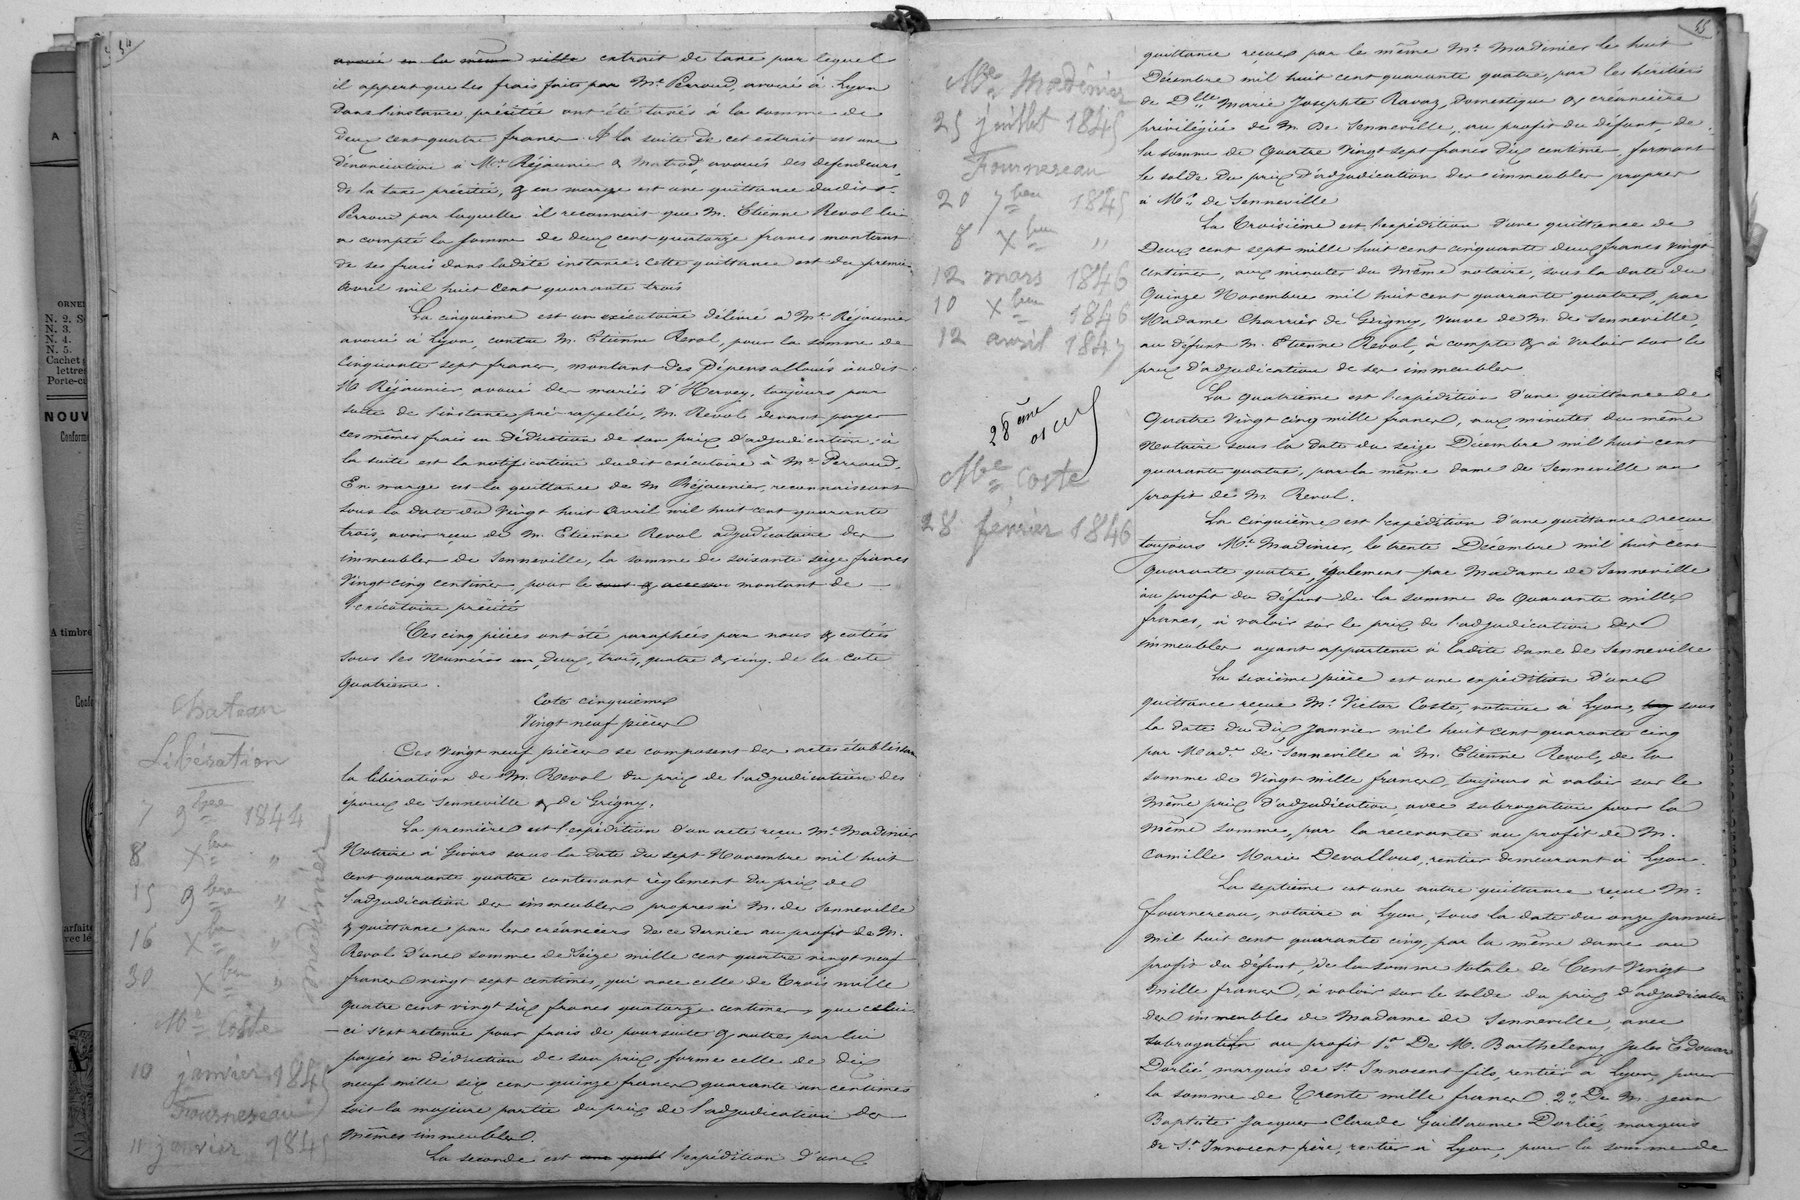 54
avoué en la même ville extrait de taxe par lequel
il appert que les frais faits par Me Perroud, avoué à Lyon
dans l'instance précitée ont été taxés à la somme de
deux cent quatre francs. A la suite de cet extrait est une
dénonciation à Mes Réjaunier & Matrod, avoués des défendeurs,
de la taxe précitée, & en marge est une quittance dudit Me
Perroud par laquelle il reconnait que M. Etienne Revol lui
a compté la somme de deux cent quatorze francs montant
de ses frais dans ladite instance. Cette quittance est du premier
avril mil huit cent quarante trois
La cinquième est un exécutoire délivré à Me Réjaunier
avoué à Lyon, contre M. Etienne Revol, pour la somme de
Cinquante sept francs, montant des dépens alloués audit
Me Réjaunier, avoué des mariés d'Hervey, toujours par
suite de l'instance pré-rappelée, M. Revol devant payer
ces mêmes frais en déduction de son prix d'adjudication ; à
la suite est la notification dudit exécutoire à Me Perroud.
En marge est la quittance de M. Réjaunier, reconnaissant
sous la date du vingt huit avril mil huit cent quarante
trois, avoir reçu de M. Etienne Revol adjudicataire des
immeubles de Senneville, la somme de soixante seize francs
vingt cinq centimes, pour le cout & accessoi montant de
l'exécutoire précité
Ces cinq pièces ont été paraphées par nous & cotées
sous les Numéros un, deux, trois, quatre & cinq de la cote
quatrième.
Cote cinquième
Vingt neuf pièces
Ces vingt neuf pièces se composent des actes établissant
la libération de M. Revol du prix de l'adjudication des
époux de Senneville & de Grigny.
La première est l'expédition d'un acte reçu Me Madinier
Notaire à Givors sous la date du sept Novembre mil huit
cent quarante quatre contenant règlement du prix de
l'adjudication des immeubles propres à M. de Senneville
& quittance par les créanciers de ce dernier au profit de M.
Revol d'une somme de Seize mille cent quatre vingt neuf
francs vingt sept centimes, qui avec celle de trois mille
quatre cent vingt six francs quatorze centimes, que celui-
ci s'est retenue pour frais de poursuite & autres par lui
payés en déduction de son prix, forme celle de dix
neuf mille six cent quinze francs quarante un centimes
soit la majeure partie du prix de l'adjudication des
mêmes immeubles.
La seconde est une quitt l'expédition d'une
Chateau
Libération
7 9bre 1844
8 Xbre "
15 9bre "
16 Xbre "
30 Xbre "
Madinier
Me Coste
10 janvier 1845
Fournereau
11 janvier 1845
55
Me Madinier
25 juillet 1845
Fournereau
20 7bre 1845
8 Xbre "
12 mars 1846
10 Xbre 1846
12 avril 1847
28ème
Me Coste
28 février 1846
quittance reçue par le même Me Madinier le huit
Décembre mil huit cent quarante quatre, par les héritiers
de Dlle Marie Josephte Ravaz, domestique & créancière
privilégiée de M. De Senneville, au profit du défunt, de
la somme de Quatre vingt sept francs dix centimes, formant
le solde du prix d'adjudication des immeubles propres
à Mr de Senneville
La Troisième est l'expédition d'une quittance de
Deux cent sept mille huit cent cinquante deux francs vingt
centimes, aux minutes du même notaire, sous la date du
Quinze Novembre mil huit cent quarante quatre, par
Madame Charrier de Grigny, veuve de M. de Senneville,
au défunt M. Etienne Revol, à compte & à valoir sur le
prix d'adjudication de ses immeubles.
La quatrième est l'expédition d'une quittance de
Quatre vingt cinq mille francs, aux minutes du même
Notaire sous la date du seize Décembre mil huit cent
quarante quatre, par la même dame de Senneville au
profit de M. Revol.
La cinquième est l'expédition d'une quittance reçue
toujours Me Madinier, le trente Décembre mil huit cent
quarante quatre, également par Madame de Senneville
au profit du défunt de la somme de Quarante mille
francs, à valoir sur le prix de l'adjudication des
immeubles ayant appartenu à ladite dame de Senneville
La sixième pièce est une expédition d'une
quittance reçue Me Victor Coste, notaire à Lyon, sous
la date du dix Janvier mil huit cent quarante cinq
par Made de Senneville à M. Etienne Revol, de la
somme de Vingt mille francs, toujours à valoir sur le
même prix d'adjudication, avec subrogation pour la
même somme, par la recevante au profit de M.
Camille Marie Devallous, rentier demeurant à Lyon.
La septième est une autre quittance reçue Me
Fournereau, notaire à Lyon, sous la date du onze Janvier
mil huit cent quarante cinq, par la même dame au
profit du défunt, de la somme totale de Cent Vingt
mille francs, à valoir sur le solde du prix d'adjudication
des immeubles de Madame de Senneville, avec
subrogation au profit 1º De M. Barthelemy Jules Edouard
Dorlié marquis de St Innocent fils, rentier à Lyon, pour
la somme de Trente mille francs. 2º De M. Jean
Baptiste Jacques Claude Guillaume Dorlié, marquis
de St Innocent père, rentier à Lyon, pour la somme de
A
ORNE
N. 2. S
N. 3.
N. 4.
N. 5.
Cachet
lettre
Porte-cu
NOUV
Conform
A timbre
Confo
arfaite
vec lé
A